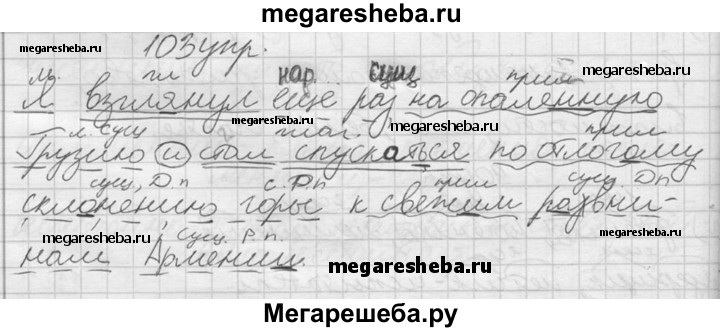 megaresheba.ru
103 упр.
м. гл нар. сущ прил
Я взглянул ещё раз на опаленную
megaresheba.ru megaresheba.ru
сущ глаг. прил
Грузию и стал спускаться по отлогому
сущ. Д п с. Р п прил сущ. Д п
склонению горы к свежим равни-
megaresheba.ru сущ. Р. п. megaresheba.ru
нам Армении. megaresheba.ru
Мегарешеба.ру